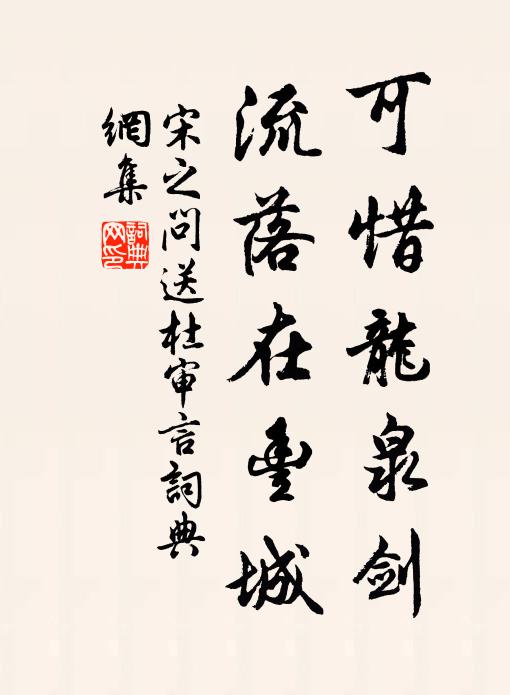 可惜龍泉剑
流落在豐城
宋之问送杜审言詞典
網集
詞典
网印